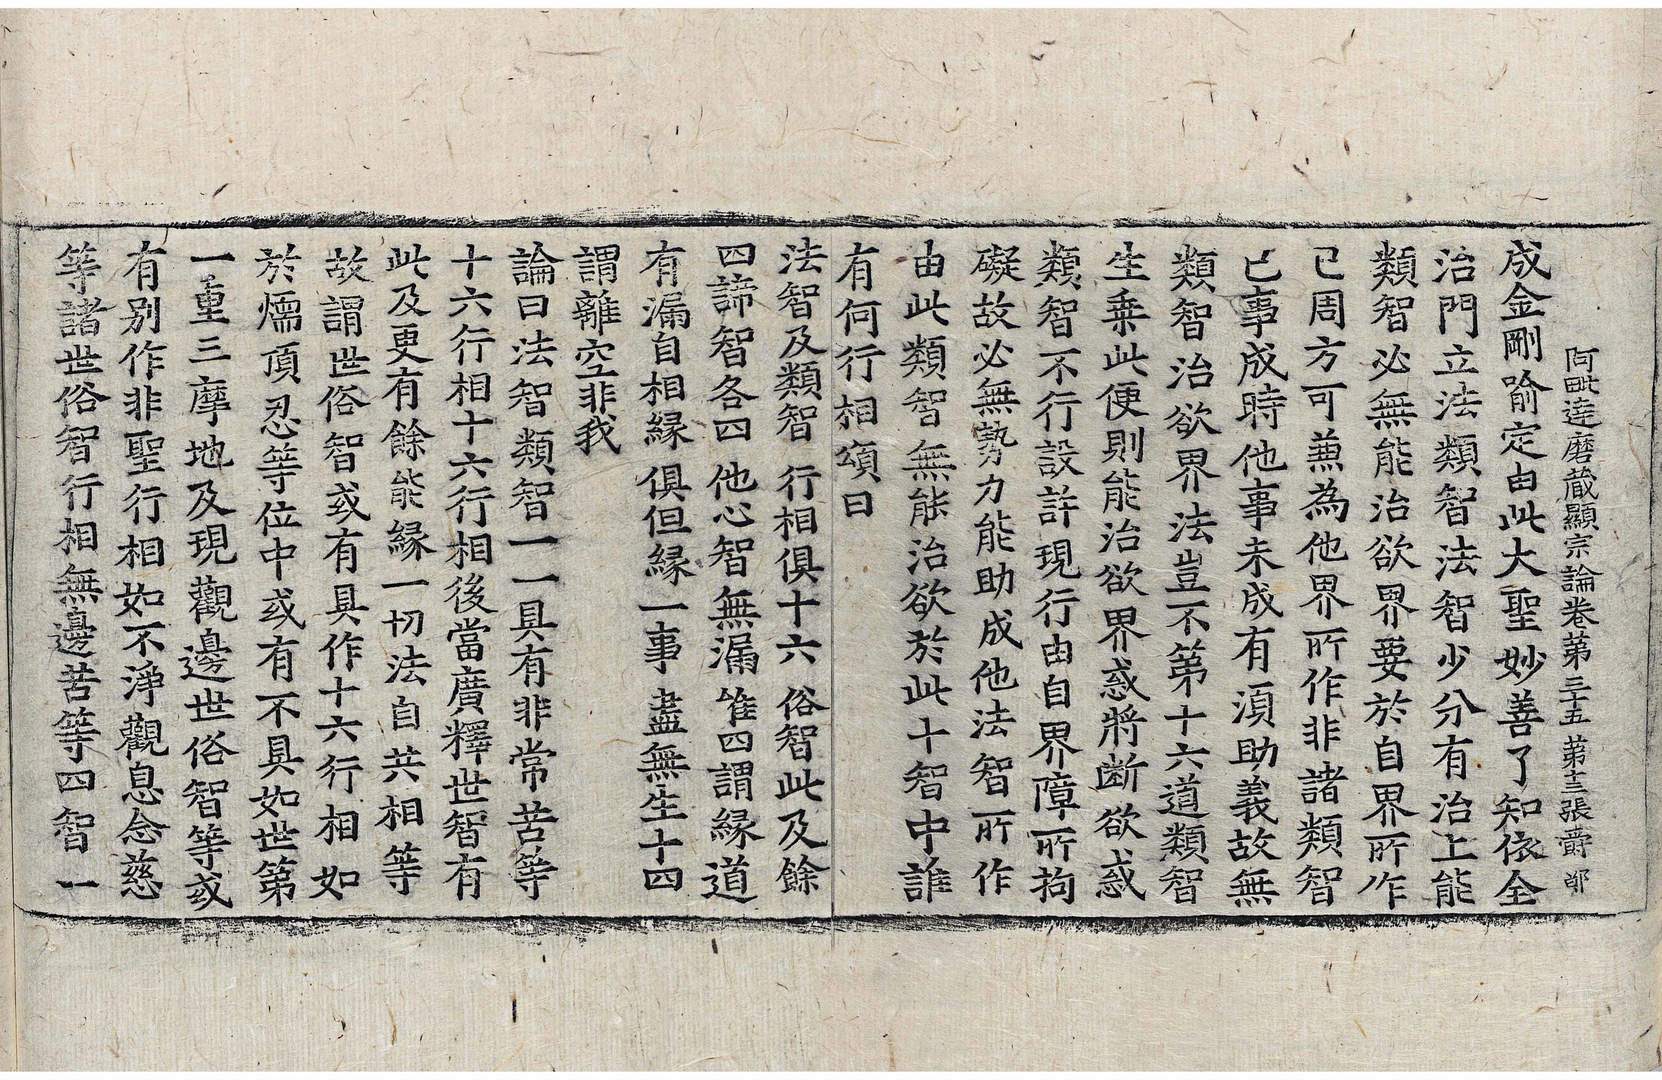 阿毗達磨藏顯宗論卷第三十五 第十三張 爵 鄁
成金剛喻定由此大聖妙善了知依全
治門立法類智法智少分有治上能
類智必無能治欲界要於自界所作
已周方可兼為他界所作非諸類智
已事成時他事未成有須助義故無
類智治欲界法豈不第十六道類智
生乗此便則能治欲界惑將断欲惑
類智不行設許現行由自界障所拘
礙故必無勢力能助成他法智所作
由此類智無能治欲於此十智中誰
有何行相頌曰
法智及類智 行相俱十六 俗智此及餘
四諦智各四 他心智無漏 唯四謂緣道
有漏自相緣 俱但緣一事 盡無生十四
謂離空非我
論曰法智類智一一具有非常苦等
十六行相十六行相後當廣釋世智有
此及更有餘能緣一切法自共相等
故謂世俗智或有具作十六行相如
於煗頂忍等位中或有不具如世第
一重三摩地及現觀邊世俗智等或
有別作非聖行相如不淨觀息念慈
等諸世俗智行相無邊苦等四智一